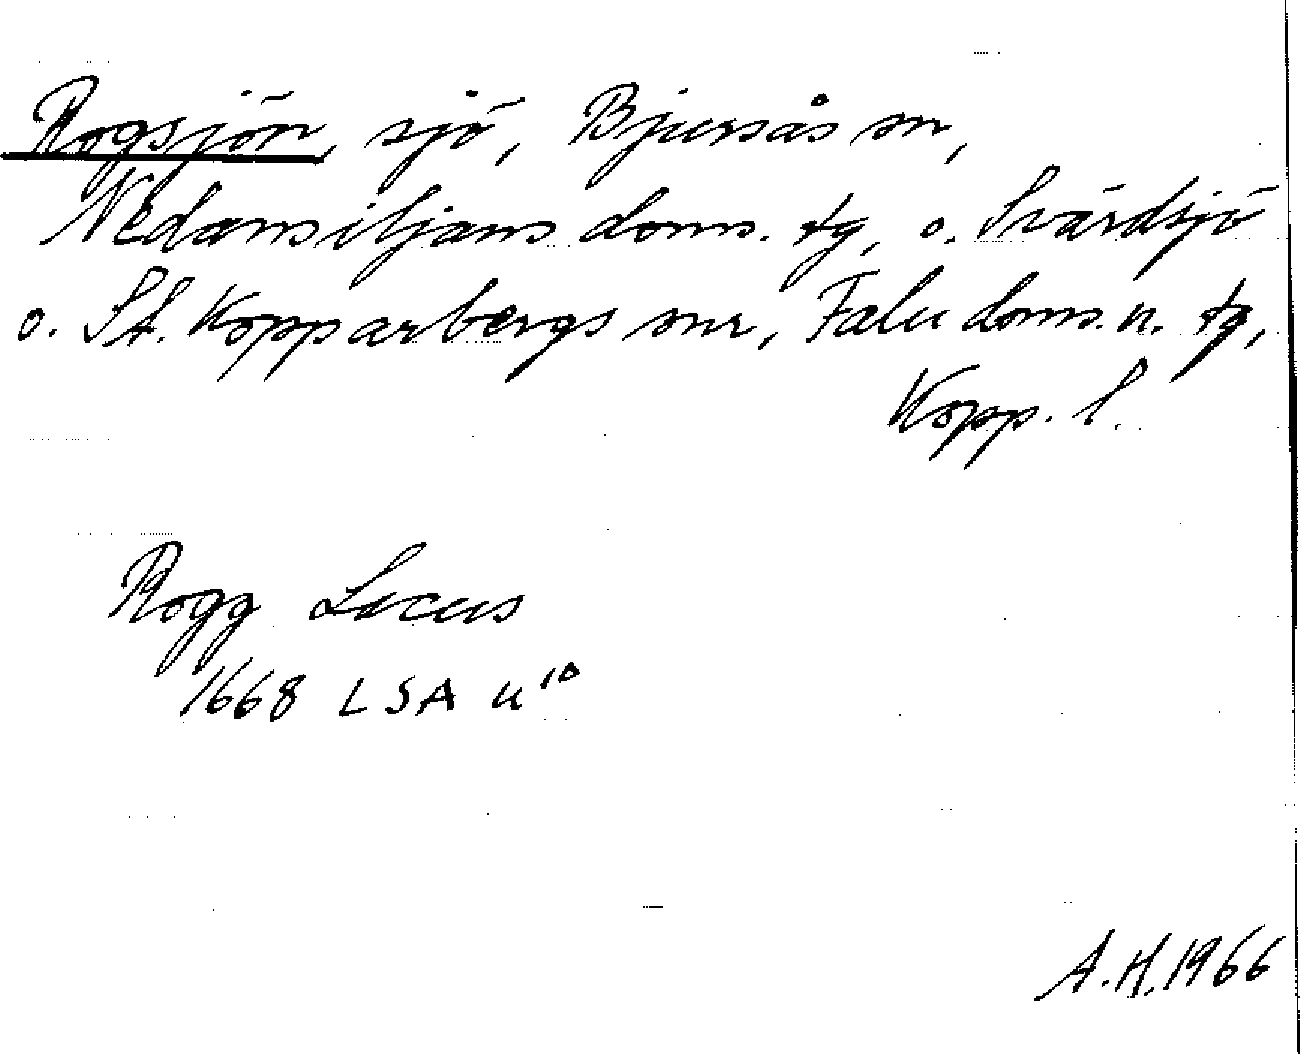 Rogsjön, sjö, Bjursås sn,
Nedansiljans doms. tg, o. Svärdsjö
o. St. Kopparbergs snr, Falu doms. n. tg,
Kopp. l.
Rogg Lacus
1668 LSA u¹⁰
A.H. 1966